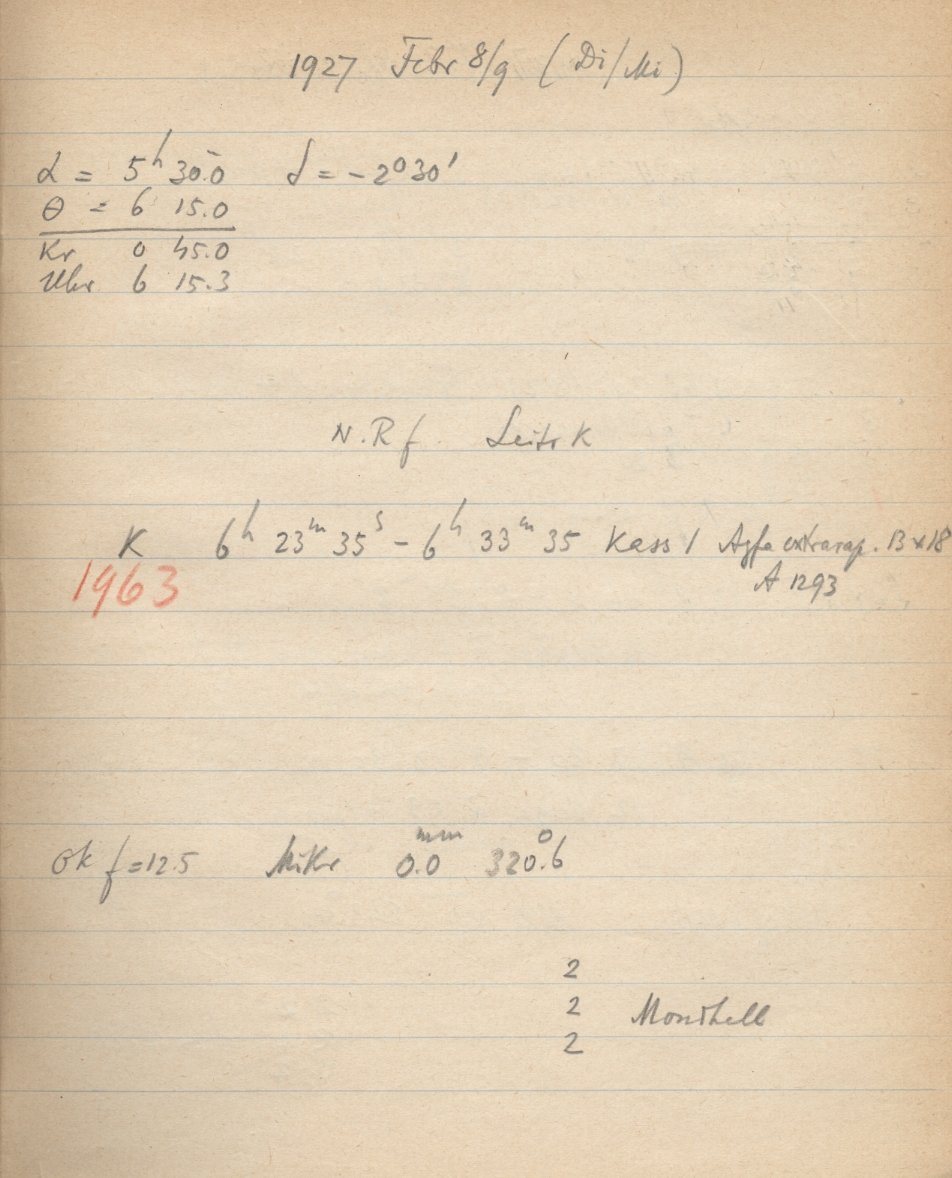 1927 Febr 8/9 (Di/Mi)
α = 5ʰ 30.0 δ = -2°30'
θ = 6 15.0
Kr 0 45.0
Uhr 6 15.3
N.R f. Leitr K
K 6ʰ 23ᵐ 35ˢ - 6ʰ 33ᵐ 35 Kass 1 Agfa extrarap. 13x18
1963 A 1293
Ok f=12.5 Mikr 0.0ᵐᵐ 320°.6
2
2 Mondhell
2